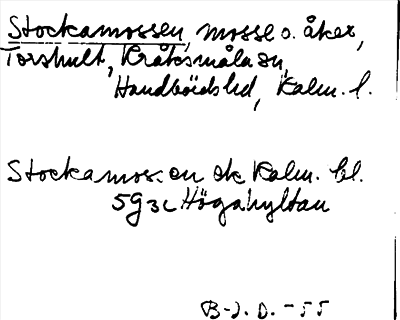 Stockamossen, mosse o. åker,
Torshult, Kråksmåla sn,
Handbörds hd, Kalm. l.
Stockamossen ek Kalm. bl.
5g3c Högahyltan
B-J. D. - 55